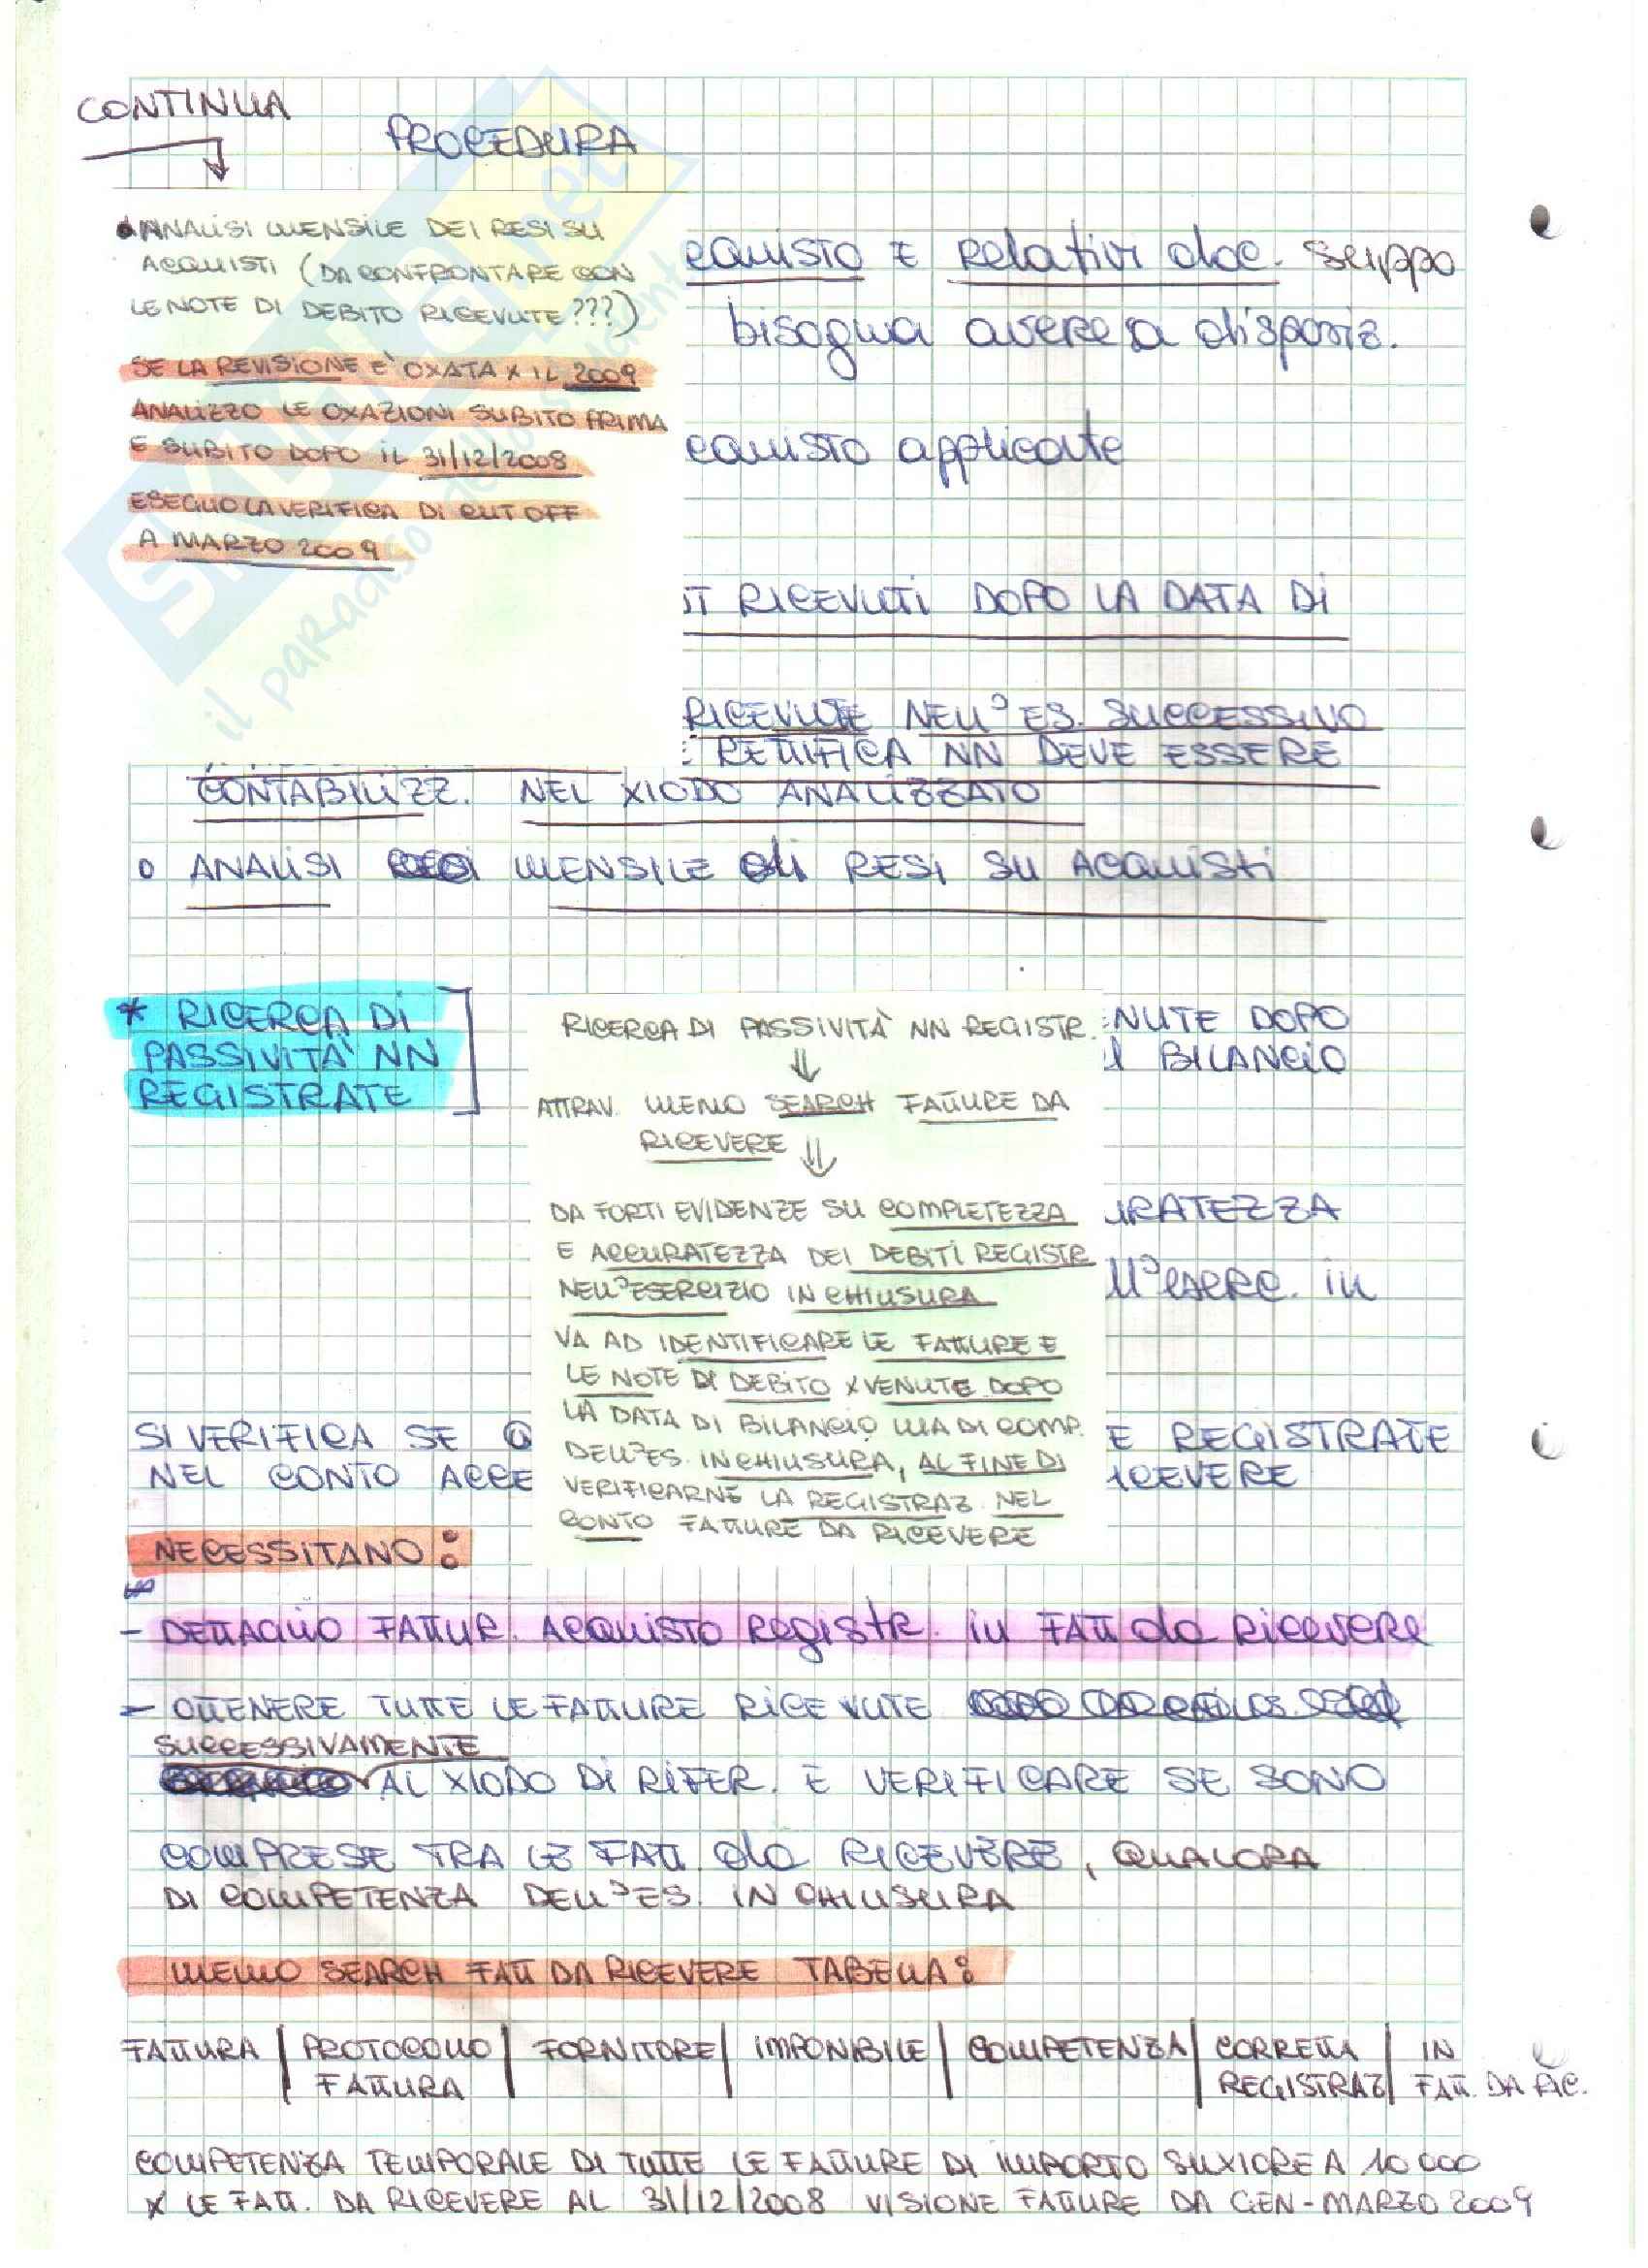 CONTINUA
PROCEDURA
ANALISI MENSILE DEI RESI SU
ACQUISTI (DA CONFRONTARE CON
LE NOTE DI DEBITO RICEVUTE???)
SE LA REVISIONE E' OXATA X IL 2009
ANALIZZO LE OXAZIONI SUBITO PRIMA
E SUBITO DOPO IL 31/12/2008
ESEGUO LA VERIFICA DI CUT OFF
A MARZO 2009
cquisto E Relativi doc.
bisogna avere a disposiz.
cquisto applicate
RICEVUTI DOPO LA DATA DI
RICEVUTE NELL'ES. SUCCESSIVO
RETTIFICA NN DEVE ESSERE
CONTABILIZZ. NEL XIODO ANALIZZATO
o ANALISI MENSILE di RESI SU ACQUISTI
* RICERCA DI
PASSIVITA' NN
REGISTRATE
RICERCA DI PASSIVITA' NN REGISTR.
⇓
ATTRAV. MEMO SEARCH FATTURE DA
RICEVERE ⇓
DA FORTI EVIDENZE SU COMPLETEZZA
E ACCURATEZZA DEI DEBITI REGISTR
NELL'ESERCIZIO IN CHIUSURA
VA AD IDENTIFICARE LE FATTURE E
LE NOTE DI DEBITO XVENUTE DOPO
LA DATA DI BILANCIO, MA DI COMP.
DELL'ES. IN CHIUSURA, AL FINE DI
VERIFICARNE LA REGISTRAZ. NEL
CONTO FATTURE DA RICEVERE
ENUTE DOPO
BILANCIO
URATEZZA
ll'eserc. in
SI VERIFICA SE E REGISTRATE
NEL CONTO ACCE ICEVERE
NECESSITANO:
- DETTAGLIO FATTUR. ACQUISTO Registr. in FATT da Ricevere
- OTTENERE TUTTE LE FATTURE RICEVUTE
SUCCESSIVAMENTE
AL XIODO DI RIFER. E VERIFICARE SE SONO
COMPRESE TRA LE FATT. da RICEVERE, QUALORA
DI COMPETENZA DELL'ES. IN CHIUSURA
MEMO SEARCH FATT DA RICEVERE TABELLA:
FATTURA | PROTOCOLLO | FORNITORE | IMPONIBILE | COMPETENZA | CORRETTA | IN
FATTURA REGISTRAZ | FATT. DA RIC.
COMPETENZA TEMPORALE DI TUTTE LE FATTURE DI IMPORTO SUXIORE A 10 000
X LE FATT. DA RICEVERE AL 31/12/2008 VISIONE FATTURE DA GEN-MARZO 2009
il paradiso dello studente